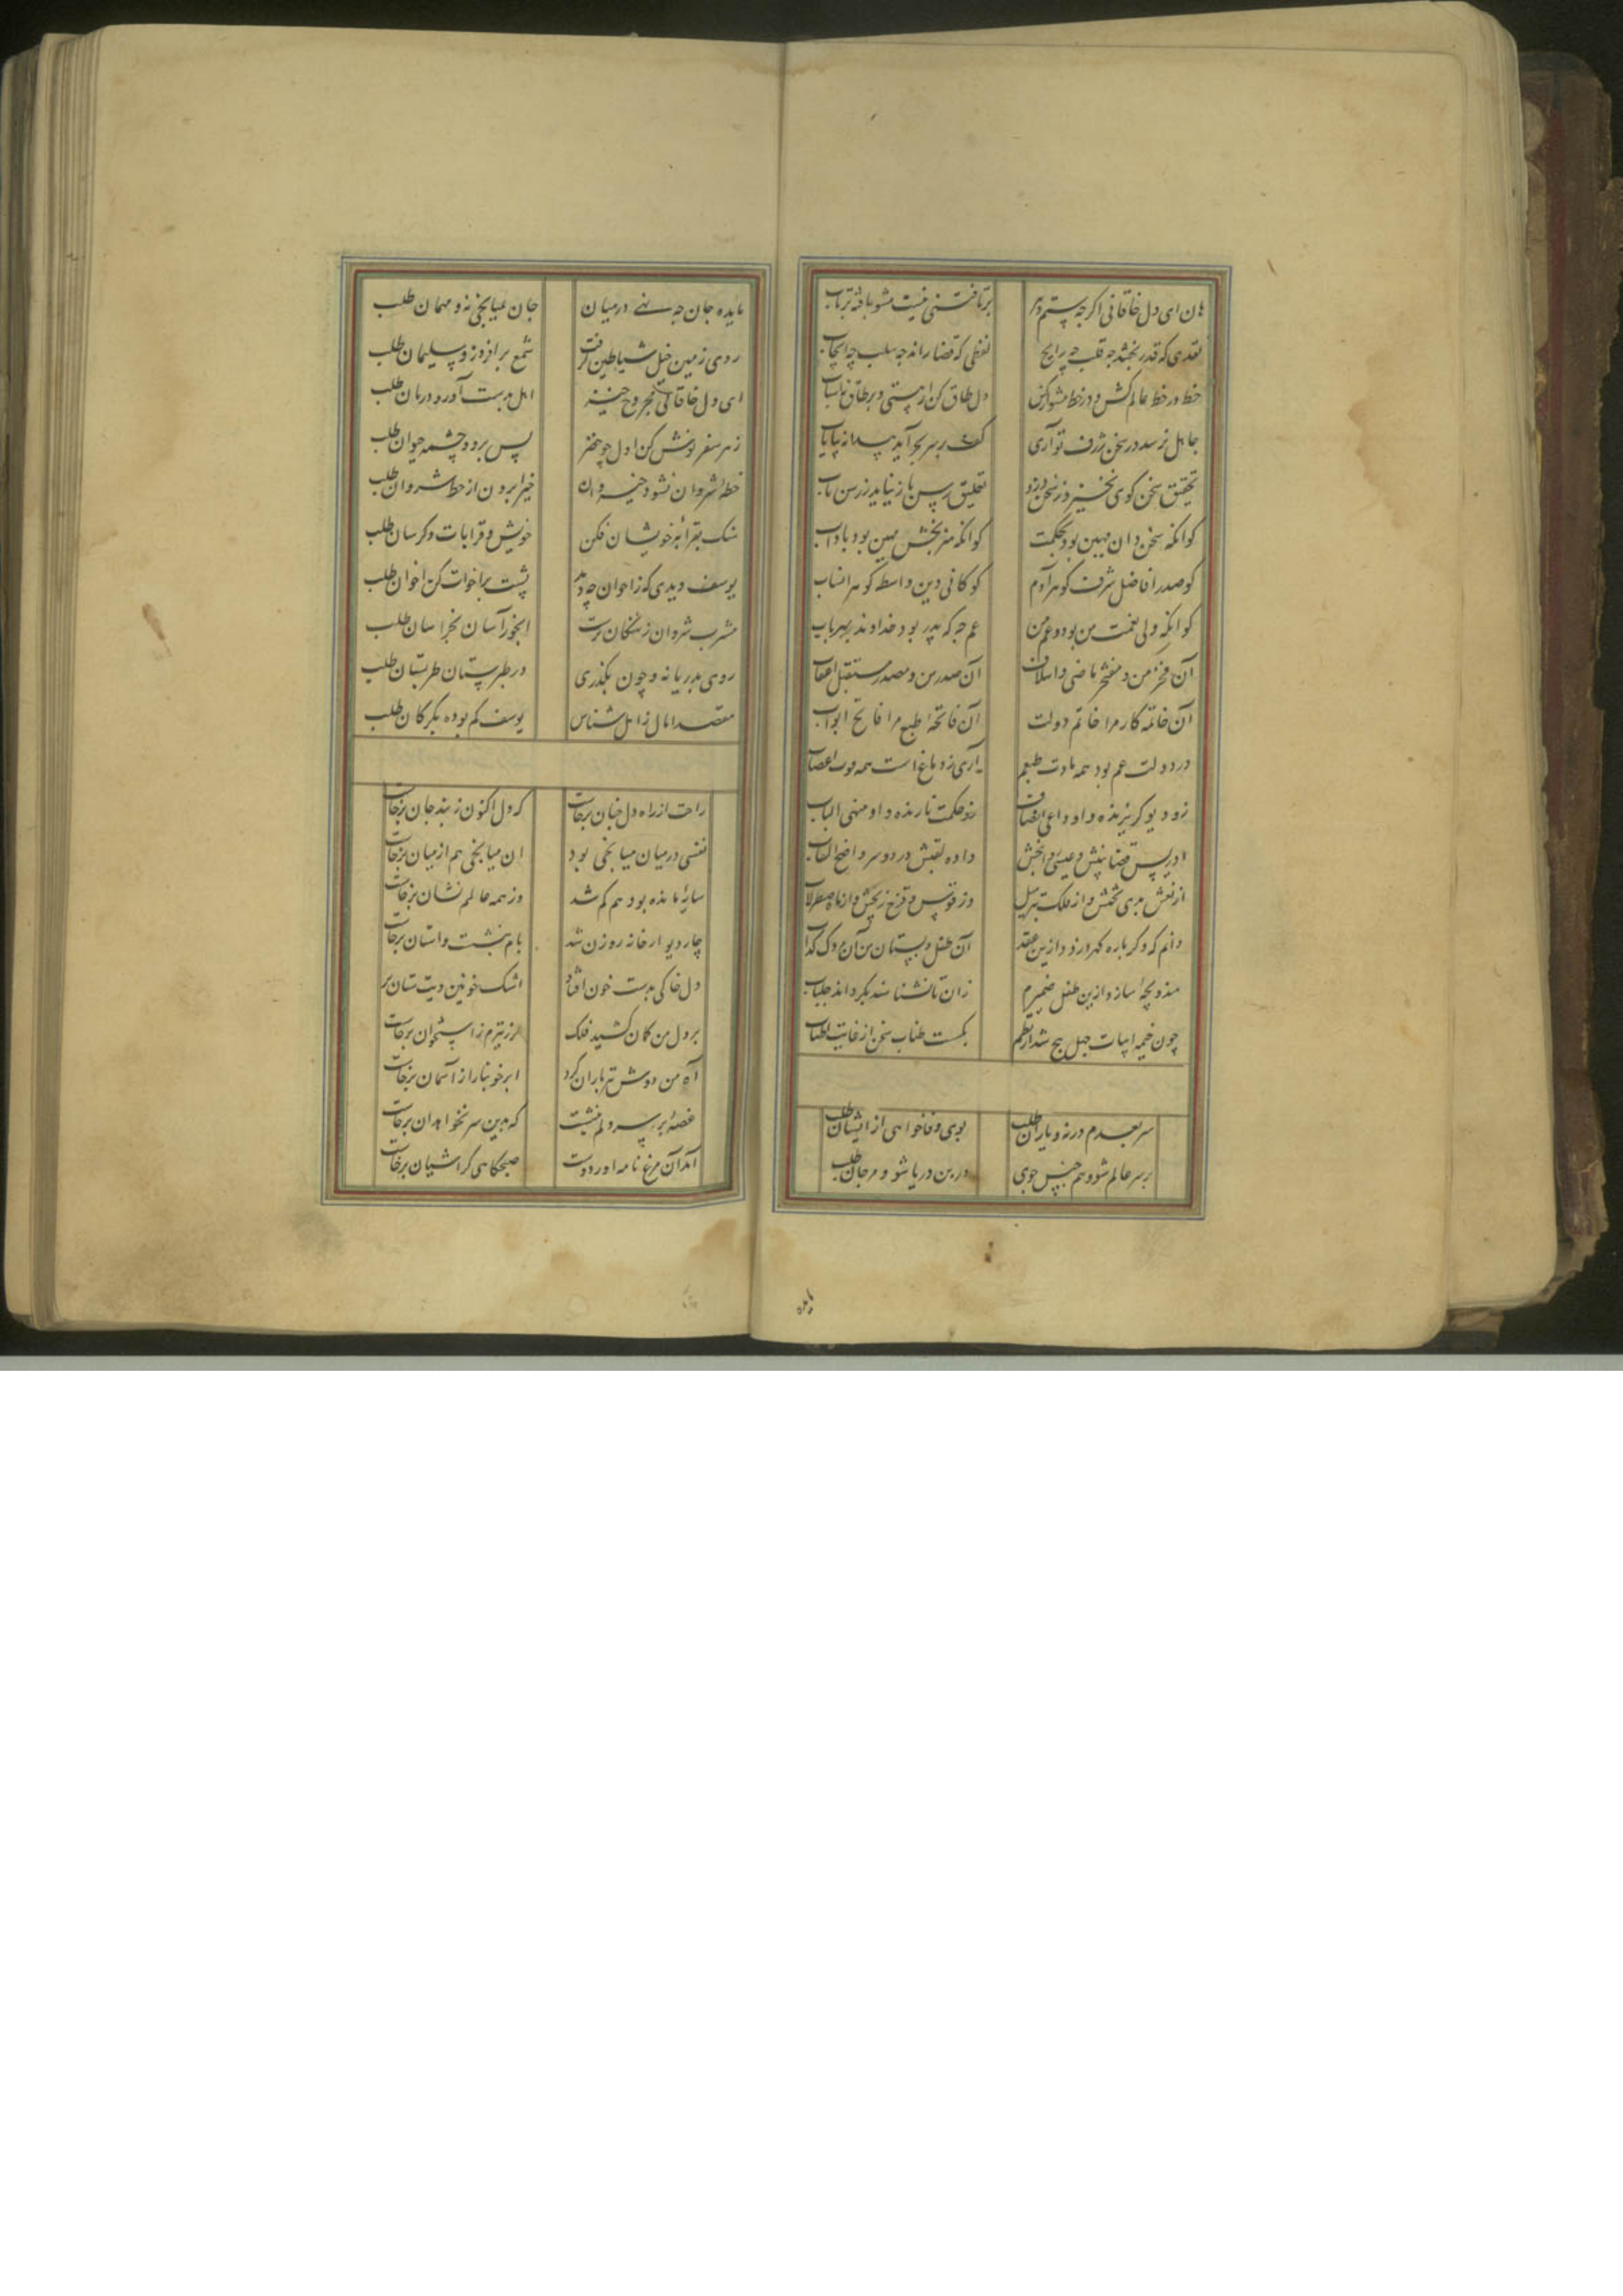 هان ای دل خاقانی اگر چه ستم دهر برتافتنی نیست مشو تافته برتاب
نقدی که قدر بخشد چه قلب چه رایج لفظی که قضا راند چه سلب چه ایجاب
خط در خط عالم کش و در خط مشو از کس دل طاق کن از هستی و بر طاق نه اسباب
جاهل نرسد در سخن ژرف تو آری کف بر سر بحر آید پیدا نه پایاب
تحقیق سخن گوی نخیزد ز سخن دزد تعلیق رسن باز نیاید ز رسن تاب
کو آنکه سخن دان مهین بود بحکمت کو آنکه هنر بخش بهین بود باداب
کو صدر افاضل شرف گوهر آدم کو کافی دین واسطه گوهر انساب
کو آنکه ولی نعمت من بود و عم من عم چه که پدر بود و خداوند بهر باب
آن فخر من و مفتخر ماضی و اسلاف آن صدر من و مصدر مستقبل اعقاب
آن خاتمه کار مرا خاتم دولت آن فاتحه طبع مرا فاتح ابواب
در دولت عم بود همه مادت طبعم آری ز دماغ است همه قوت اعصاب
زو دیو گریزنده و او داعی انصاف زو حکمت نازنده و او منهی الباب
ادریس قضا بینش و عیسی روان بخش داده لقبش در دو سر واضع القاب
از نعش هدی تختش و از فلک وز قوس قزح زیجش و از ماه صطرلاب
دانم که دگر باره گهر دزدد ازین عقد آن طفل دبستان من آن مردک کذاب
هندوبچه سازد ازین طفل ضمیرم زان تا نشناسند بگرداند جلباب
چون خیمه ابیات چهل پنج شد از نظم بگسست طناب سخن از غایت اطناب
سر بعدم در نه و یاران طلب بوی وفا خواهی از ایشان طلب
بر سر عالم شو و هم جنس جوی در بن دریا شو و مرجان طلب
مایده جان چه نهی در میان جان بمیانجی نه و مهمان طلب
روی زمین خیل شیاطین گرفت شمع برافروز و سلیمان طلب
ای دل خاقانی مجروح خیز اهل بدست آور و درمان طلب
زهر سفر نوش کن اول چو خضر پس برو و چشمه حیوان طلب
خطه شروان نشود خیروان خیر برون از خط شروان طلب
سنگ بقرابه خویشان فکن خویش و قرابات دگرسان طلب
یوسف دیدی که ز اخوان چه دید پشت بر اخوت کن اخوان طلب
مشرب شروان ز نهنگان پرست آبخور آسان بخراسان طلب
روی بدریا نه و چون بگذری در طبرستان طربستان طلب
مقصد آمال ز آمل شناس یوسف گم بوده بگرگان طلب
راحت از راه دل چنان برخاست که دل اکنون ز بند جان برخاست
نفسی در میان میانجی بود آن میانجی هم از میان برخاست
سایه مانده بود هم گم شد وز همه عالم نشان برخاست
چار دیوار خانه روزن شد بام بنشست و آستان برخاست
دل خاکی بدست خون افتاد اشک خونین دیت ستان بر
بر دل من کمان کشید فلک لرز تیرم ز استخوان برخاست
آه من دوش تیر باران کرد ابر خونبار از آسمان برخاست
غصه بر سر دلم بنشست که بدین سر نخواهد آن برخاست
آمد آن مرغ نامه آور دوست صبحگاهی کز آشیان برخاست